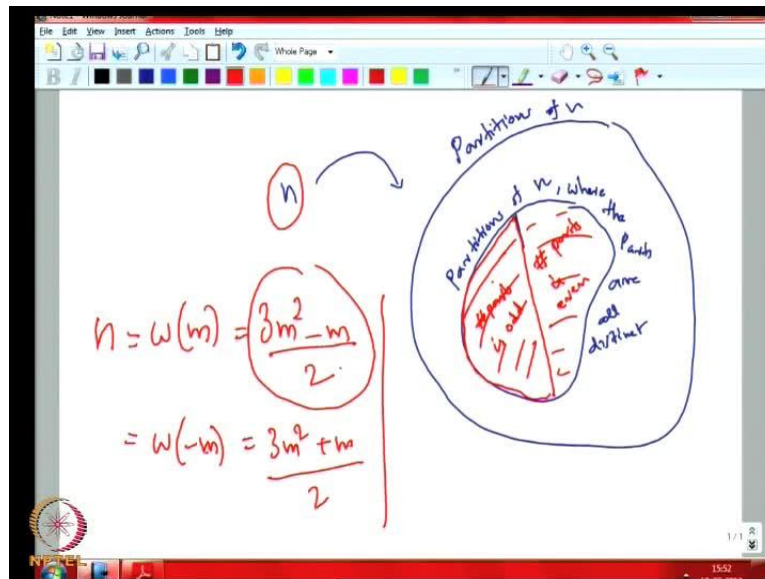 File Edit View Insert Actions Tools Help
Whole Page
B I
Partitions of n
n
Partitions of n, where
the
Parts
are
all
distinct
# parts
is
even
# parts
is odd
n = w(m) = 3m² - m
2
= w(-m) = 3m² + m
2
1/1
NPTEL
15:52